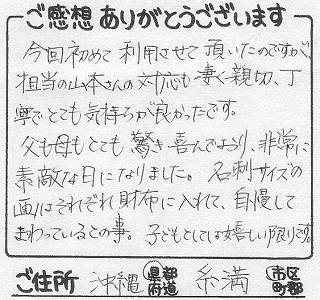 ご感想ありがとうございます
今回初めて利用させて頂いたのですが、
担当の山本さんの対応も凄く親切、丁
寧でとても気持ちが良かったです。
父も母もとても驚き喜んでおり、非常に
素敵な日になりました。名刺サイズの
画はそれぞれ財布に入れて、自慢して
まわっているとの事。子どもとしては嬉しい限りです。
ご住所 沖縄 都道府県 糸満 市区町郡